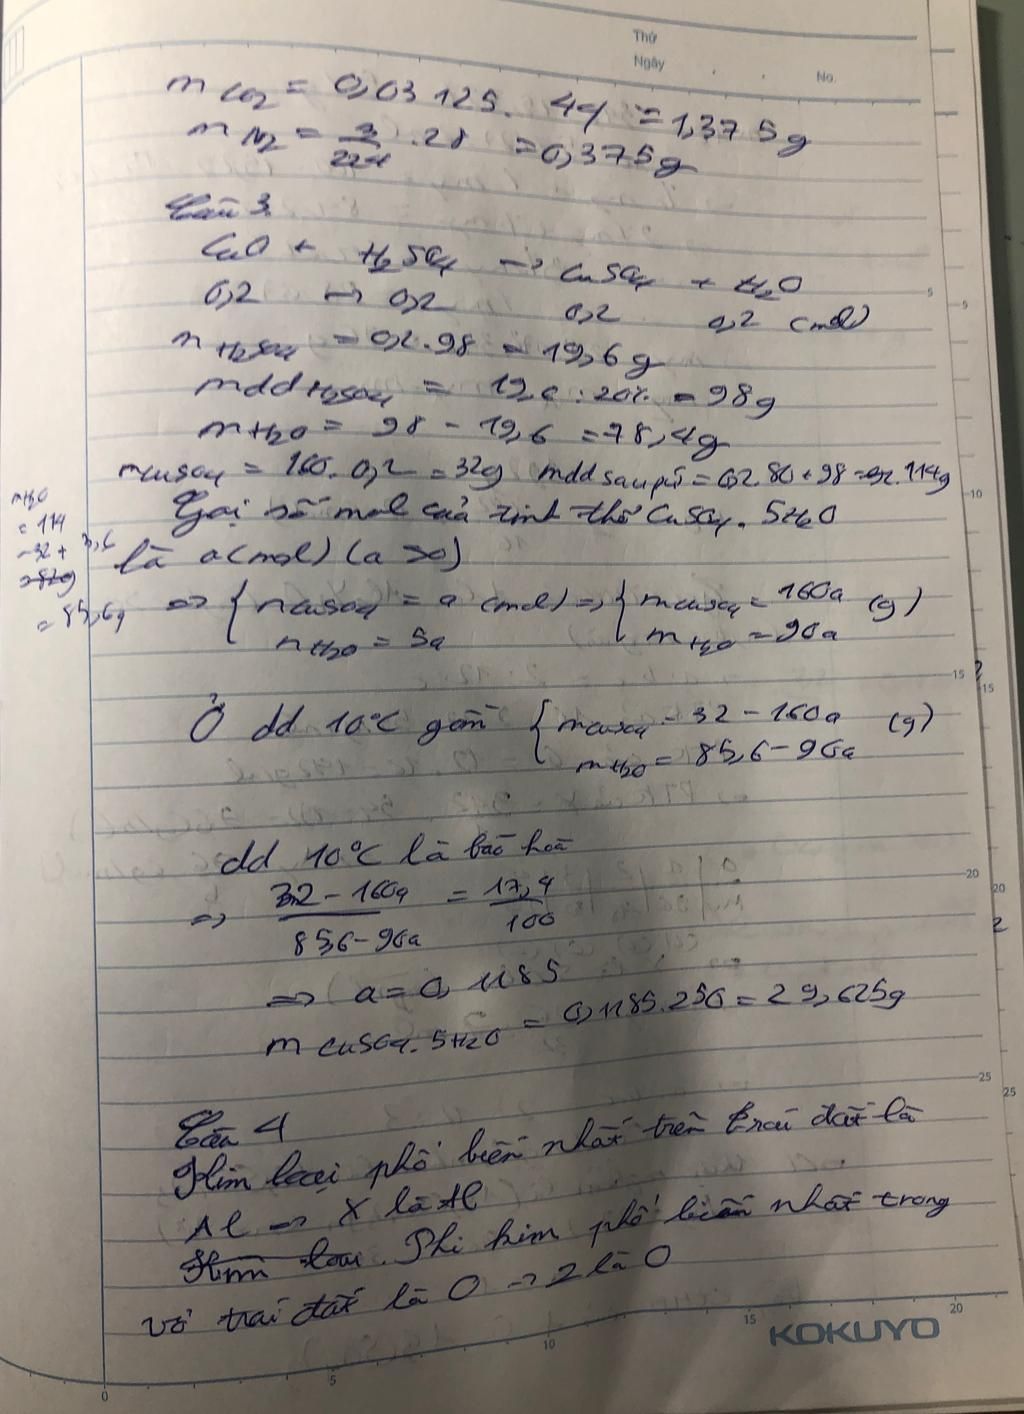 Thứ
Ngày . . No.
m CO2 = 0,03125. 44 = 1,375g
m N2 = 3/224 .28 = 0,375g
Câu 3
CuO + H2SO4 → CuSO4 + H2O
0,2 → 0,2 0,2 0,2 (mol)
m H2SO4 = 0,2.98 = 19,6g
mdd H2SO4 = 19,6 : 20% = 98g
m H2O = 98 - 19,6 = 78,4g
m CuSO4 = 160. 0,2 = 32g mdd sau pứ = 0,2.80 + 98 = 114g
Gọi số mol của tinh thể CuSO4. 5H2O
là a (mol) (a >0)
mH2O
= 114
-32 + 3,6
= 82g
= 85,6g
=> { n CuSO4 = a (mol) => { m CuSO4 = 160a (g)
n H2O = 5a m H2O = 90a
Ở dd 10°C gồm { m CuSO4 = 32 - 160a (g)
m H2O = 85,6 - 90a
dd 10°C là bão hoà
=> 32 - 160a / 85,6 - 90a = 17,4 / 100
=> a = 0,1185
m CuSO4. 5H2O = 0,1185.250 = 29,625g
Câu 4
Kim loại phổ biến nhất trên trái đất là
Al => X là Al
Kim loại. Phi kim phổ biến nhất trong
vỏ trái đất là O => Z là O
KOKUYO